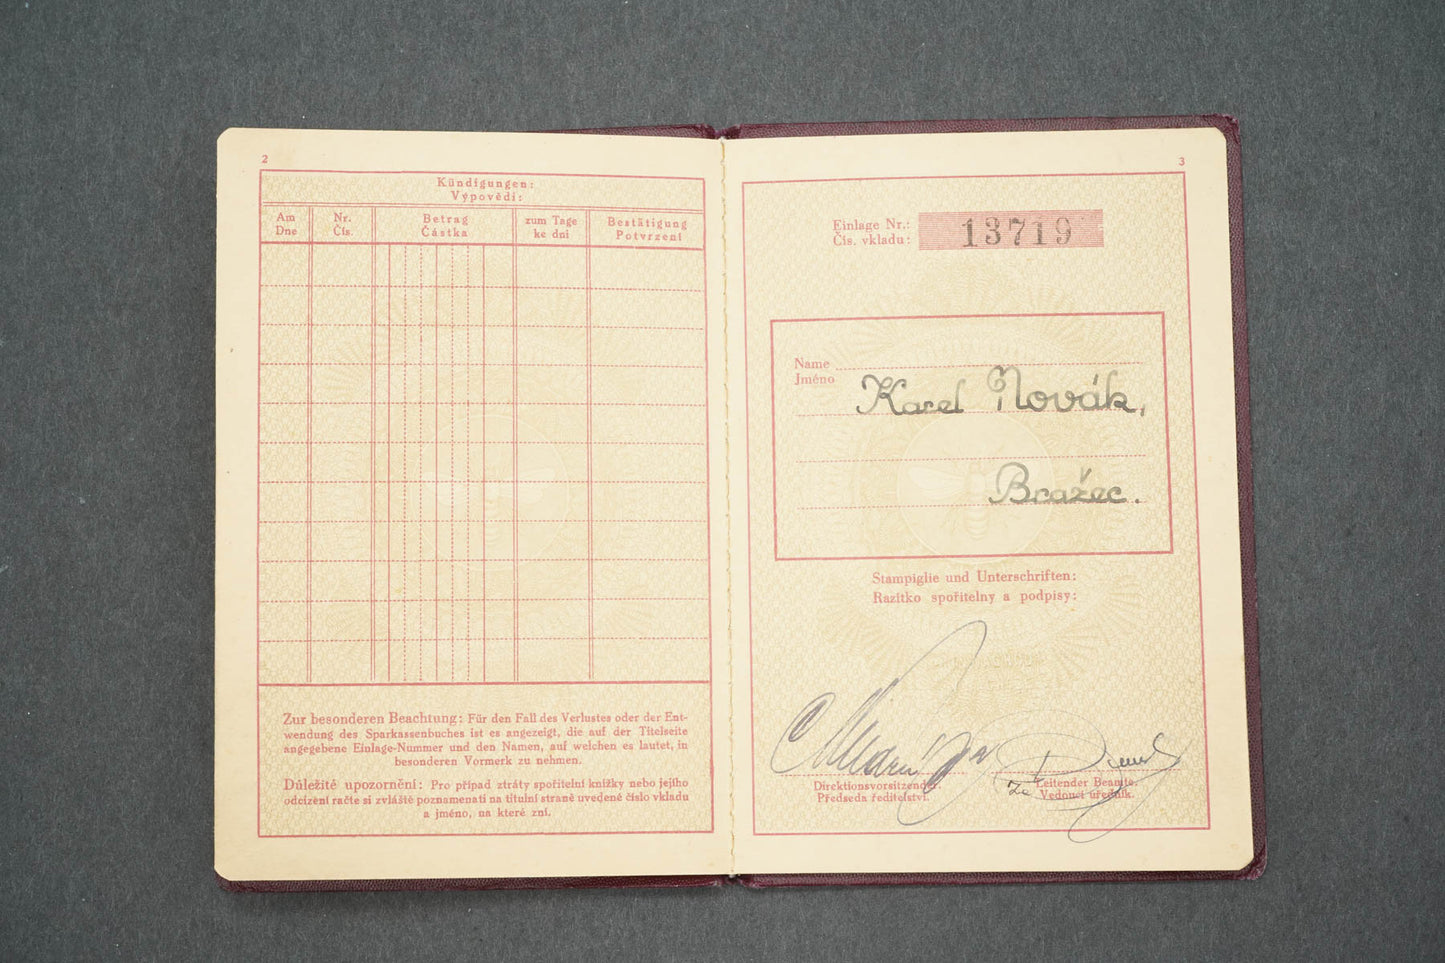 2
Kündigungen:
Výpovědi:
Am
Dne
Nr.
Čís.
Betrag
Částka
zum Tage
ke dni
Bestätigung
Potvrzení
Zur besonderen Beachtung: Für den Fall des Verlustes oder der Ent-
wendung des Sparkassenbuches ist es angezeigt, die auf der Titelseite
angegebene Einlage-Nummer und den Namen, auf welchen es lautet, in
besonderen Vormerk zu nehmen.
Důležité upozornění: Pro případ ztráty spořitelní knížky nebo jejího
odcizení račte si zvláště poznamenati na titulní straně uvedené číslo vkladu
a jméno, na které zní.
3
Einlage Nr.:
Čís. vkladu:
13719
Name
Jméno
Karel Novák,
Bražec.
Stampiglie und Unterschriften:
Razítko spořitelny a podpisy:
Direktionsvorsitzender.
Předseda ředitelství.
Leitender Beamte.
Vedoucí úředník.